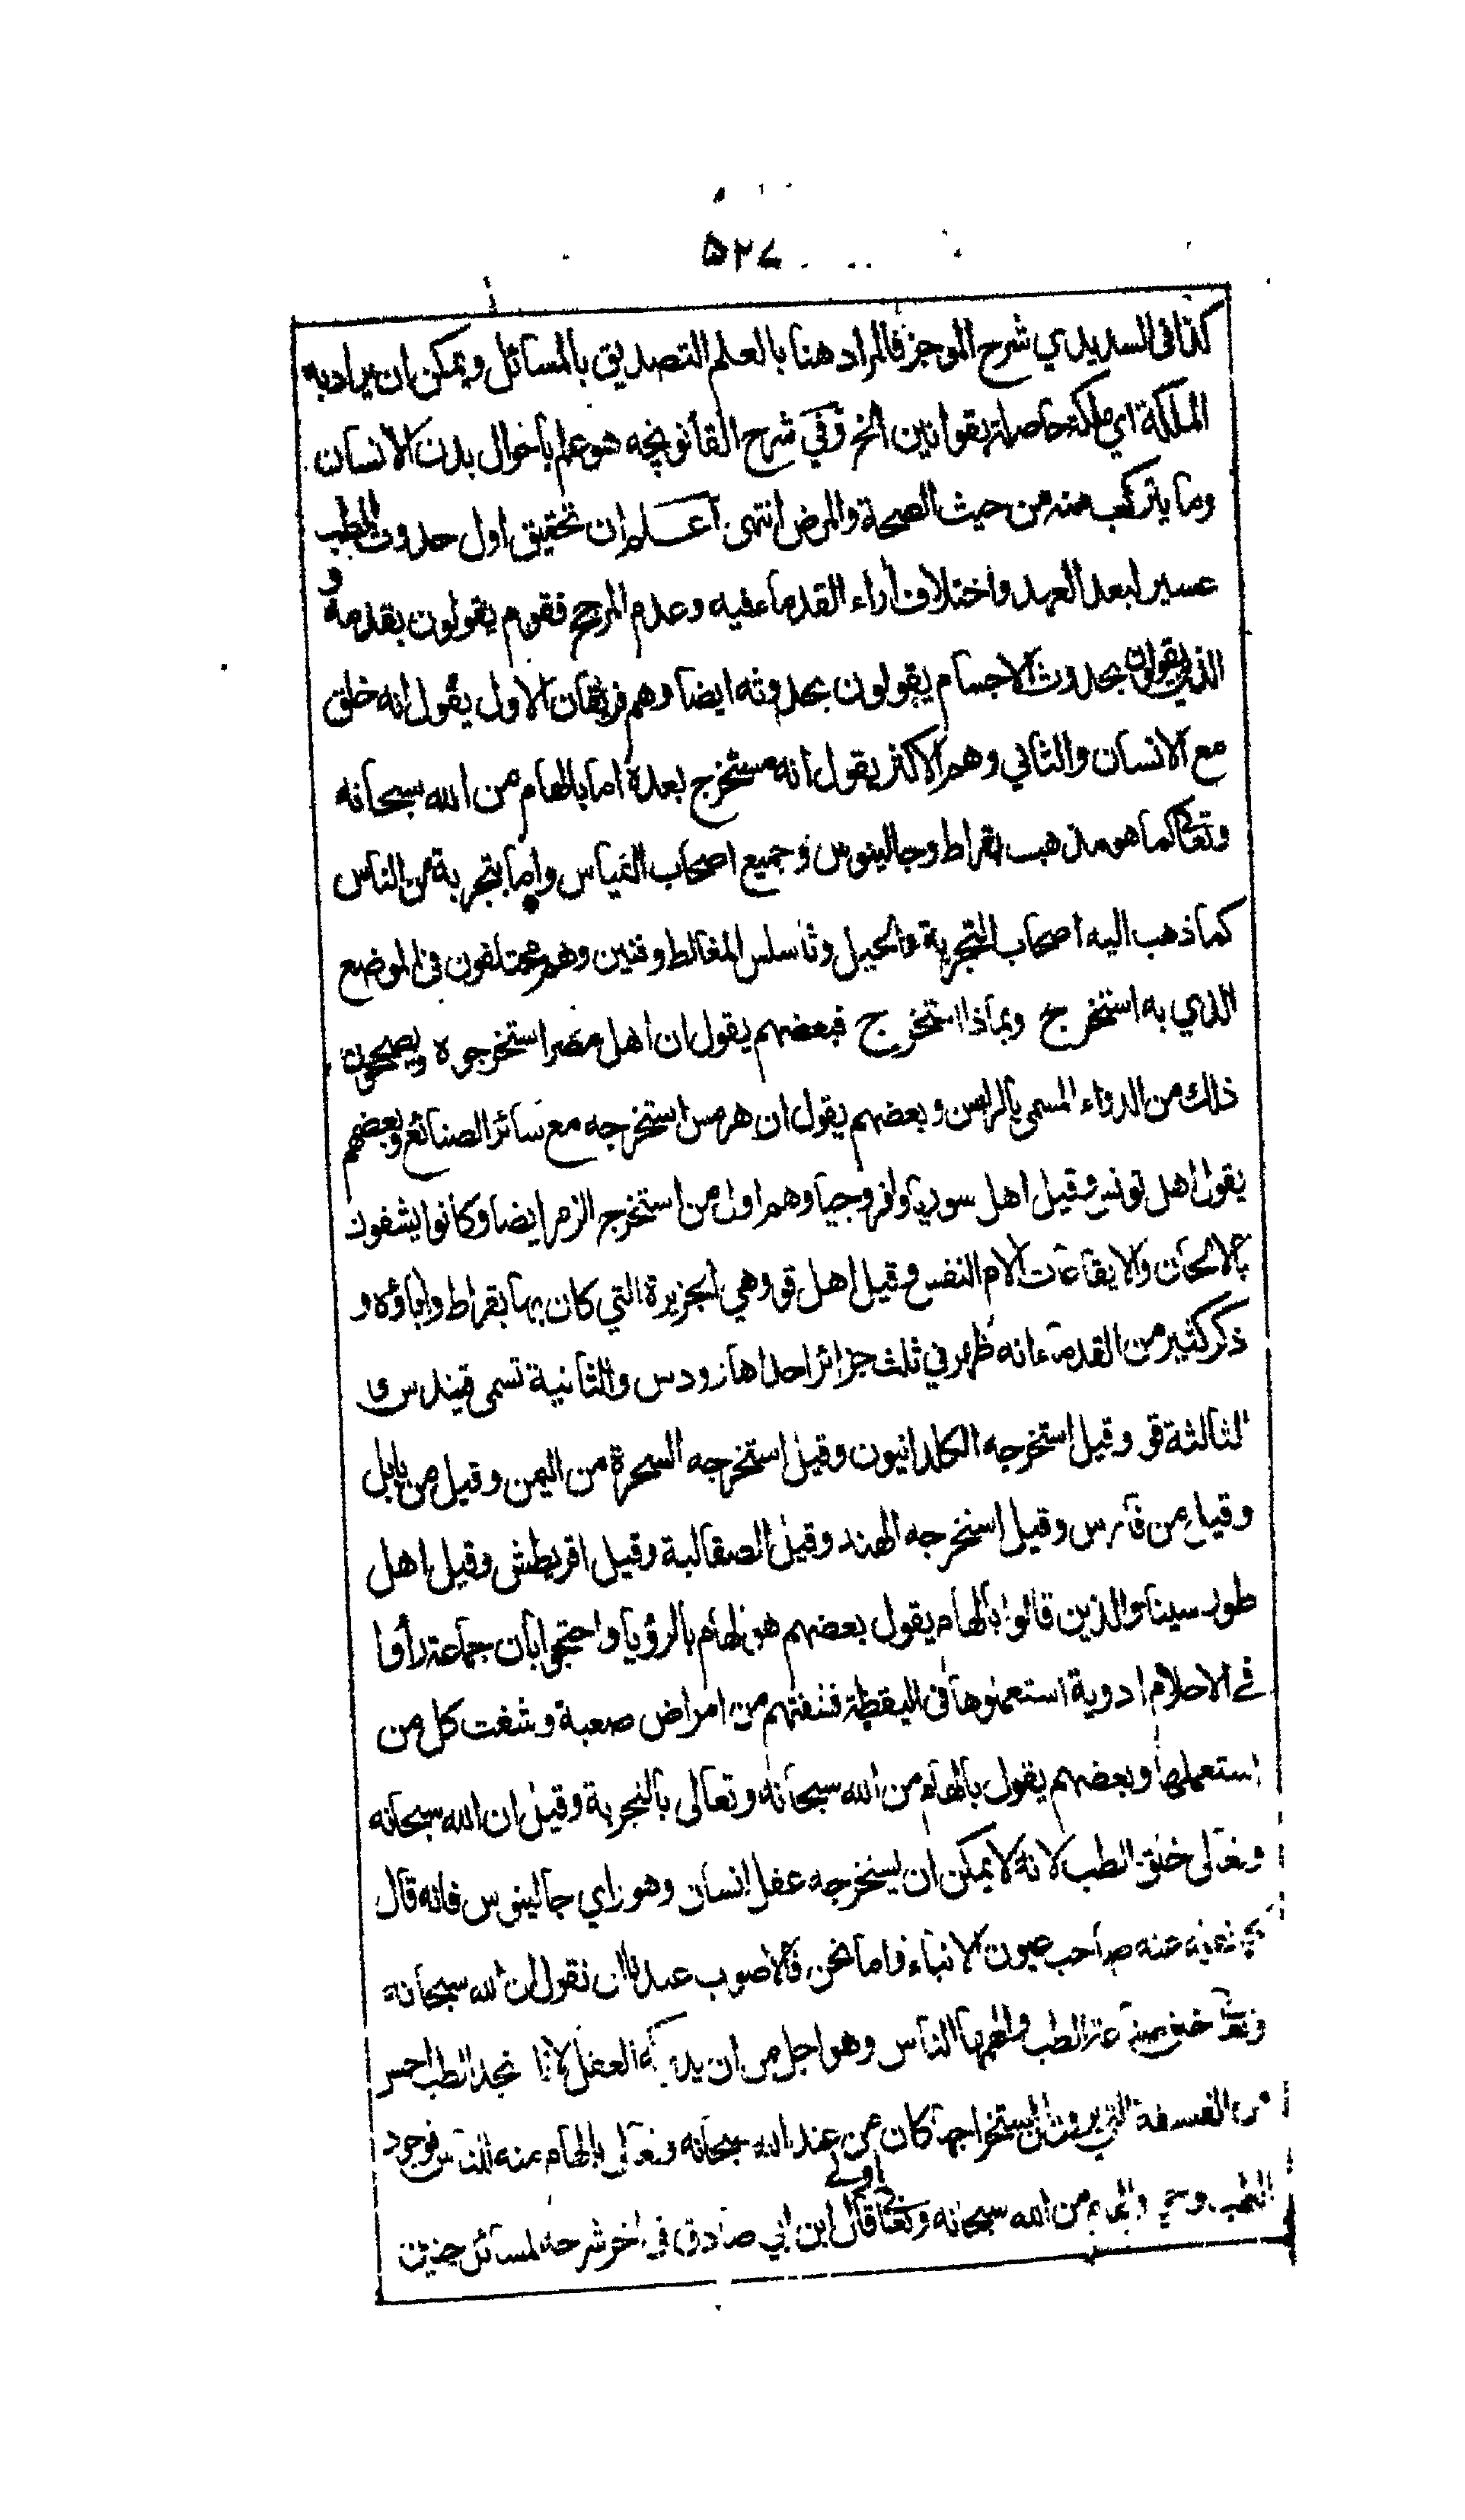 ۵۲۷
كذا فى السديدي شرح الموجز فالمراد هنا بالعلم التصديق بالمسائل ويمكن ان يراد به
الملكة اي ملكة حاصلة بقوانين الخ وفي شرح القانونچه هو علم باحوال بدن الانسان
وما يتركب منه من حيث الصحة والمرض انتهى اعلم ان تحقيق اول حدوث الطب
عسير لبعد العهد واختلاف اراء القدماء فيه وعدم المرجح فقوم يقولون بقدمه و
الذين يقولون بحدوث الاجسام يقولون بحدوثه ايضا وهم فريقان الاول يقول انه خلق
مع الانسان والثاني وهم الاكثر يقول انه مستخرج بعده اما بالهام من الله سبحانه
وتعالى كما هو مذهب بقراط وجالينوس وجميع اصحاب القياس واما بتجربة من الناس
كما ذهب اليه اصحاب التجربة والحيل وثاسلس المغالط وفنين وهم مختلفون فى الموضع
الذي به استخرج وبماذا استخرج فبعضهم يقول ان اهل مصر استخرجوه ويصححون
ذلك من الدواء المسمى بالراسن وبعضهم يقول ان هرمس استخرجه مع سائر الصنائع وبعضهم
يقول اهل تونس وقيل اهل سوريا وافروجيا وهم اول من استخرج الزمر ايضا وكانوا يشفون
بالالحان والايقاعات الام النفس وقيل اهل قو وهي الجزيرة التي كان بها بقراط واباؤه و
ذكر كثير من القدماء انه ظهر في ثلث جزائر احداها رودس والثانية تسمى قيندس و
الثالثة قو وقيل استخرجه الكلدانيون وقيل استخرجه السحرة من اليمن وقيل من بابل
وقيل من فارس وقيل استخرجه الهند وقيل الصقالبة وقيل اقريطش وقيل اهل
طور سينا والذين قالوا بالهام يقول بعضهم هو الهام بالرؤيا واحتجوا بان جماعة رأوا
في الاحلام ادوية استعملوها فى اليقظة فشفتهم من امراض صعبة وشفت كل من
استعملها وبعضهم يقول بالهام من الله سبحانه وتعالى بالتجربة وقيل ان الله سبحانه
وتعالى خلق الطب لانه لا يمكن ان يستخرجه عقل انسان وهو راي جالينوس فانه قال
عنه صاحب عيون الانباء فاما نحن فالاصوب عندنا ان نقول ان الله سبحانه
وتعالى خلق صناعة الطب والهمها الناس وهو اجل من ان يدركه العقل لانا نجد الطب احسن
من الفلسفة التي يرون ان استخراجها كان من عند الله سبحانه وتعالى بالهام منه للناس فوجود
الطب من الله سبحانه وتعالى اولى قال ابن ابي صادق فى اخر شرحه لمسائل حنين